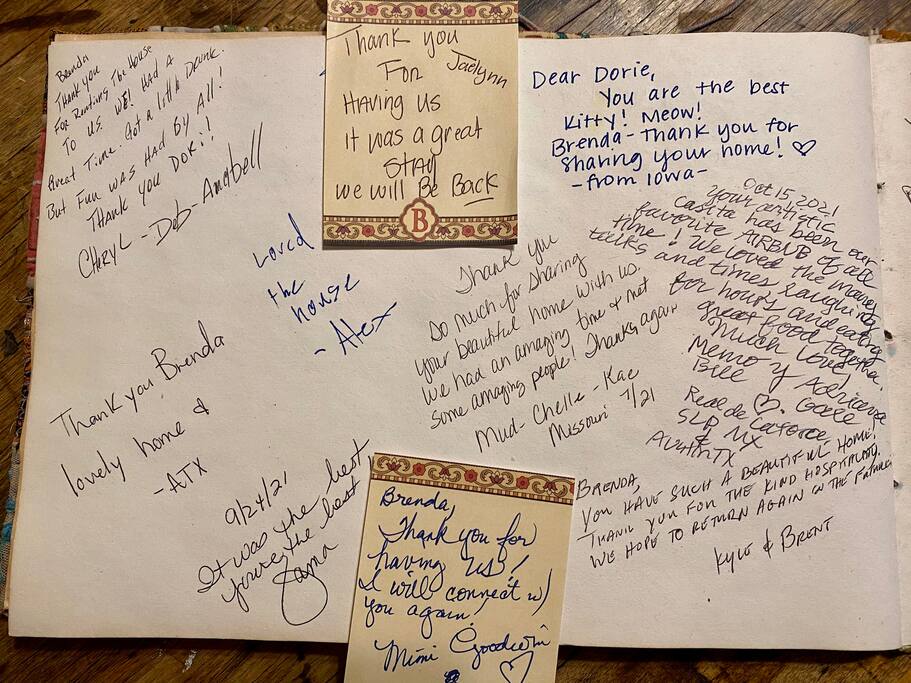 Brenda
Thank you
For Renting The House
To US. WE! HAD A
Great Time. Got a little Drunk.
But Fun was Had By All!
THANK YOU DORi!
Cheryl - Deb - Anabell
Thank you
For Jaelynn
Having us
It was a great
STAY
we will Be Back
B
Dear Dorie,
You are the best
Kitty! Meow!
Brenda - Thank you for
sharing your home! ♡
- from Iowa -
Loved
the
house
- Alex
Oct 15, 2021
Your artistic
Casita has been our
favorite AIRBNB of all
time! We loved the many
talks and times laughing
for hours and eating
great food together.
Much love,
Memo y Adriana
Bill ♡.
Real de Catorce
SLP, MX
&
Austin TX
Thank you
So much for sharing
your beautiful home with us.
We had an amazing time & met
some amazing people! Thanks again
Mud - Chelle - Kae
Missouri 7/21
Thank you Brenda
lovely home &
- ATX
9/24/21
It was the best,
you're the best
Brenda,
Thank you for
having US!
I will connect w/
you again!
Mimi Goodwin
♡
BRENDA,
YOU HAVE SUCH A BEAUTIFUL HOME,
THANK YOU FOR THE KIND HOSPITALITY.
WE HOPE TO RETURN AGAIN IN THE FUTURE
KYLE & BRENT